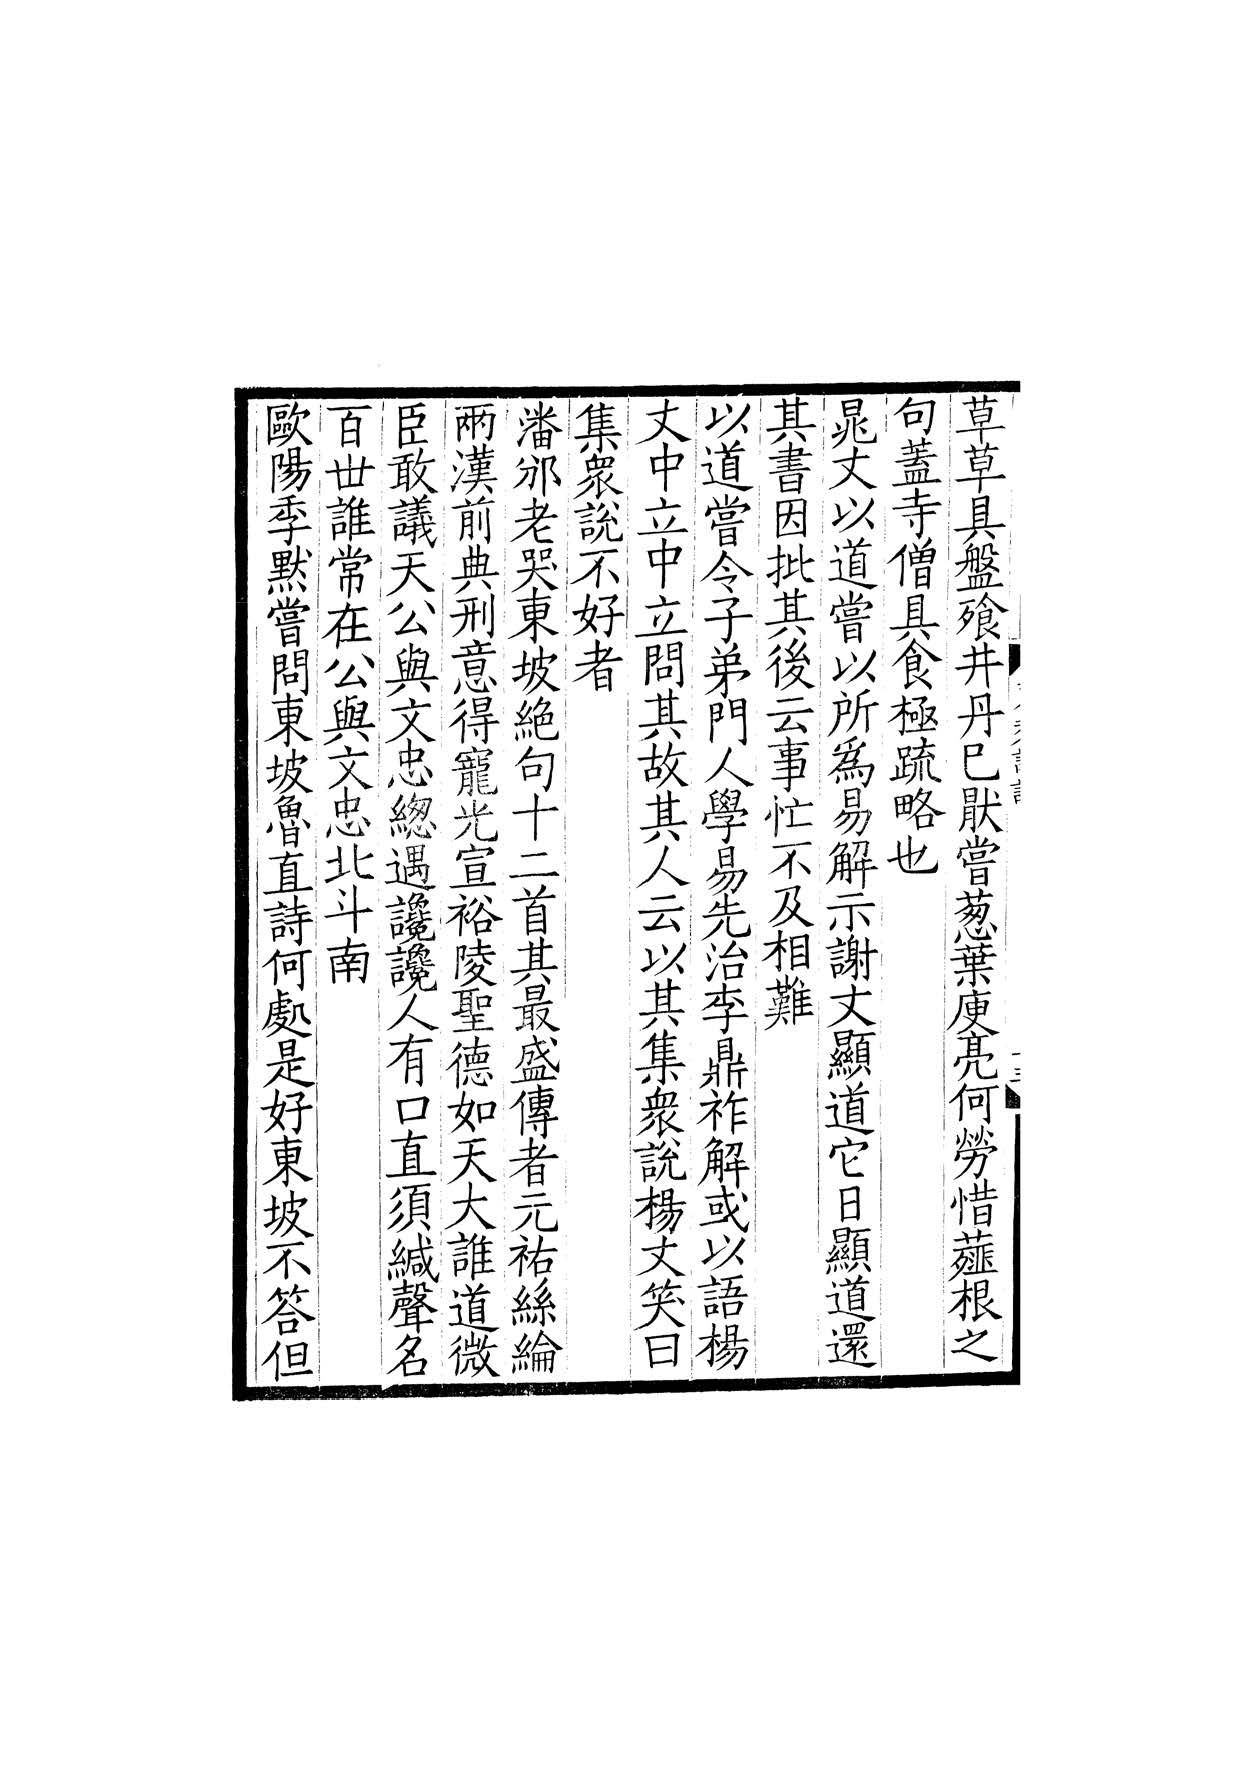 草草具盤飱井丹巳猒嘗葱葉庾亮何勞惜薤根之
句蓋寺僧具食極疏略也
晁丈以道嘗以所爲易解示謝丈顯道它日顯道還
其書因批其後云事忙不及相難
以道嘗令子弟門人學易先治李鼎祚解或以語楊
丈中立中立問其故其人云以其集衆說楊丈笑曰
集衆說不好者
潘邠老哭東坡絶句十二首其最盛傳者元祐絲綸
兩漢前典刑意得寵光宣裕陵聖德如天大誰道微
臣敢議天公與文忠緫遇讒讒人有口直須緘聲名
百丗誰常在公與文忠北斗南
歐陽季默嘗問東坡魯直詩何處是好東坡不答但